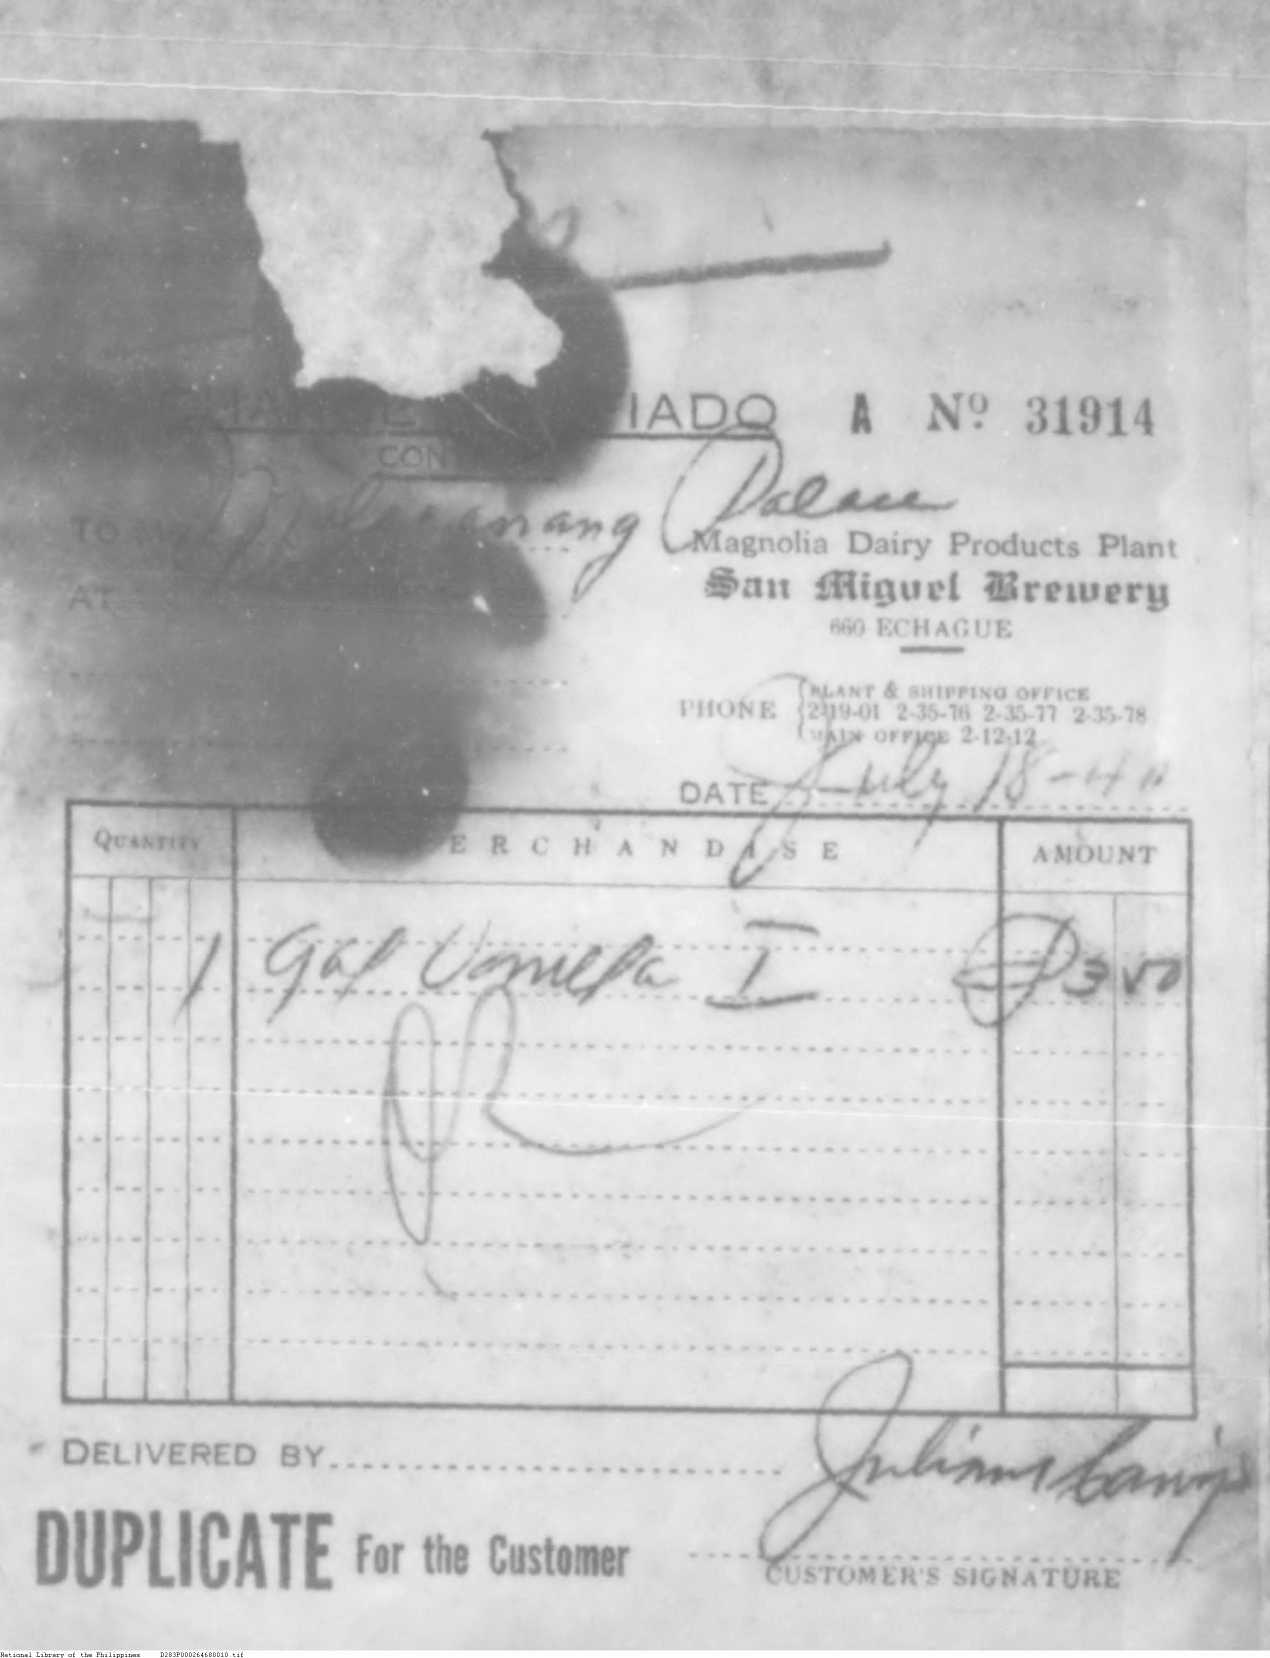 IADO A Nº 31914
CON
TO anang Palace
AT
Magnolia Dairy Products Plant
San Miguel Brewery
660 ECHAGUE
PHONE
PLANT & SHIPPING OFFICE
2-19-01 2-35-76 2-35-77 2-35-78
MAIN OFFICE 2-12-12
DATE July 18-40
QUANTITY ERCHANDISE AMOUNT
1 gal Vanilla I ₱3 50
DELIVERED BY
Juliano
DUPLICATE For the Customer
CUSTOMER'S SIGNATURE
National Library of the Philippines D283P000264680010.tif